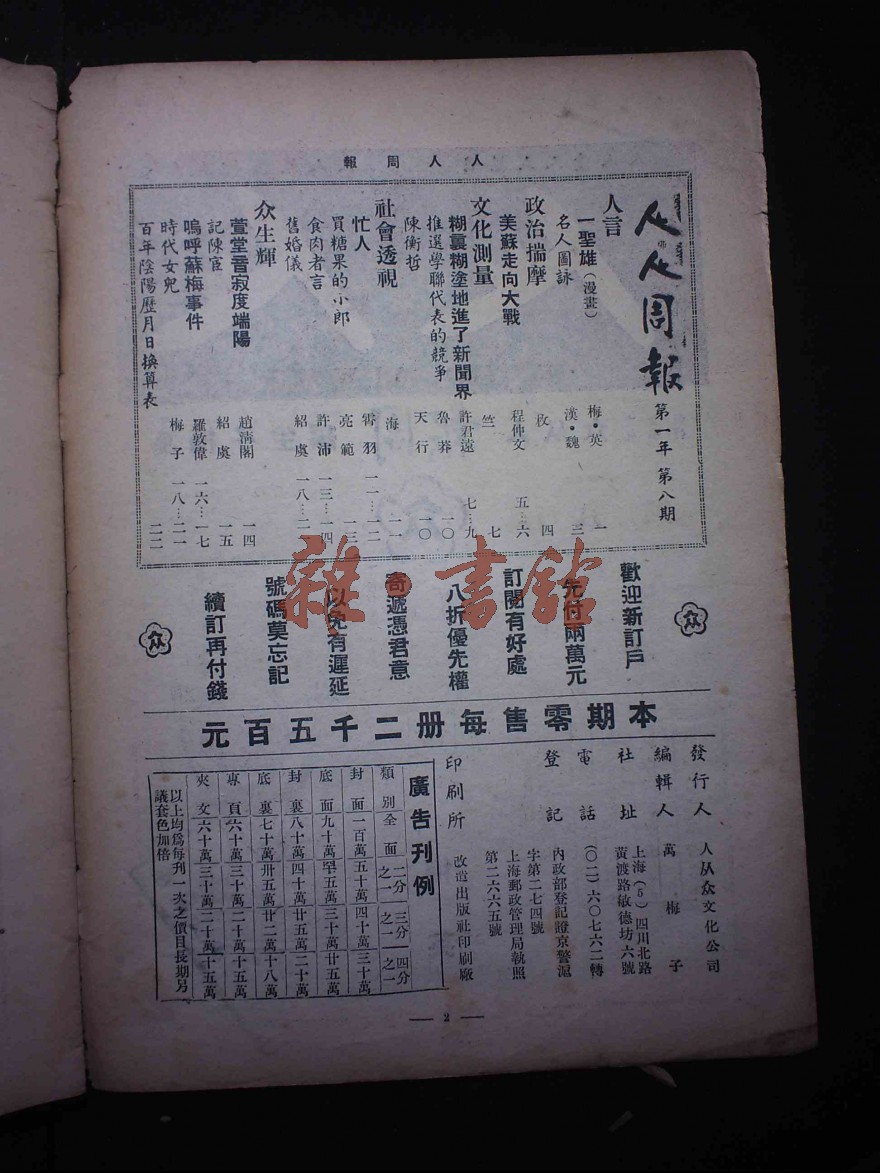 人人周報
人人周報
第一年 第八期
人言 梅·英 一
一聖雄(漫畫) 漢·魏 三
名人圖詠 枚 四
政治揣摩
美蘇走向大戰 程仲文 五…六
文化測量 竺 七
糊裏糊塗地進了新聞界 許君遠 七…九
推選學聯代表的競爭 魯莽 一〇
陳衡哲 天行 一〇
社會透視 海 一一
忙人 霄羽 一一…一二
買糖果的小郎 亮範 一三
食肉者言 許沛 一三…一四
舊婚儀 紹虞 一八…二一
众生輝
萱堂音寂度端陽 趙淸閣 一四
記陳宧 紹虞 一五
嗚呼蘇梅事件 羅敦偉 一六…一七
時代女兒 梅子 一八…二一
百年陰陽歷月日換算表 二二
众
歡迎新訂戶
先付兩萬元
訂閱有好處
八折優先權
寄遞憑君意
以免有遲延
號碼莫忘記
續訂再付錢
众
雜·書館
本期零售每册二千五百元
發行人 人从众文化公司
編輯人 萬梅子
社址 上海(5)四川北路
黃渡路敏德坊六號
電話 (〇二)六〇七六二轉
登記 內政部登記證京警滬
字第二七四號
上海郵政管理局執照
第二六六五號
印刷所 改造出版社印刷廠
廣告刊例
類別 全面 二分之一 三分之一 四分之一
封面 一百萬 五十萬 四十萬 三十萬
底面 九十萬 罕五萬 三十萬 廿五萬
封裏 八十萬 四十萬 廿五萬 二十萬
底裏 七十萬 卅五萬 廿二萬 十八萬
專頁 六十萬 三十萬 二十萬 十五萬
夾文 六十萬 三十萬 二十萬 十五萬
以上均爲每刊一次之價目長期另
議套色加倍
— 2 —